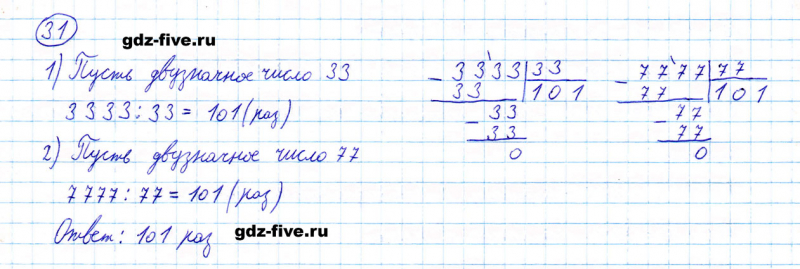 31
gdz-five.ru
1) Пусть двузначное число 33
3333 : 33 = 101 (раз)
2) Пусть двузначное число 77
7777 : 77 = 101 (раз)
Ответ: 101 раз
gdz-five.ru
- 3333 | 33
33 | 101
- 33
33
0
- 7777 | 77
77 | 101
- 77
77
0